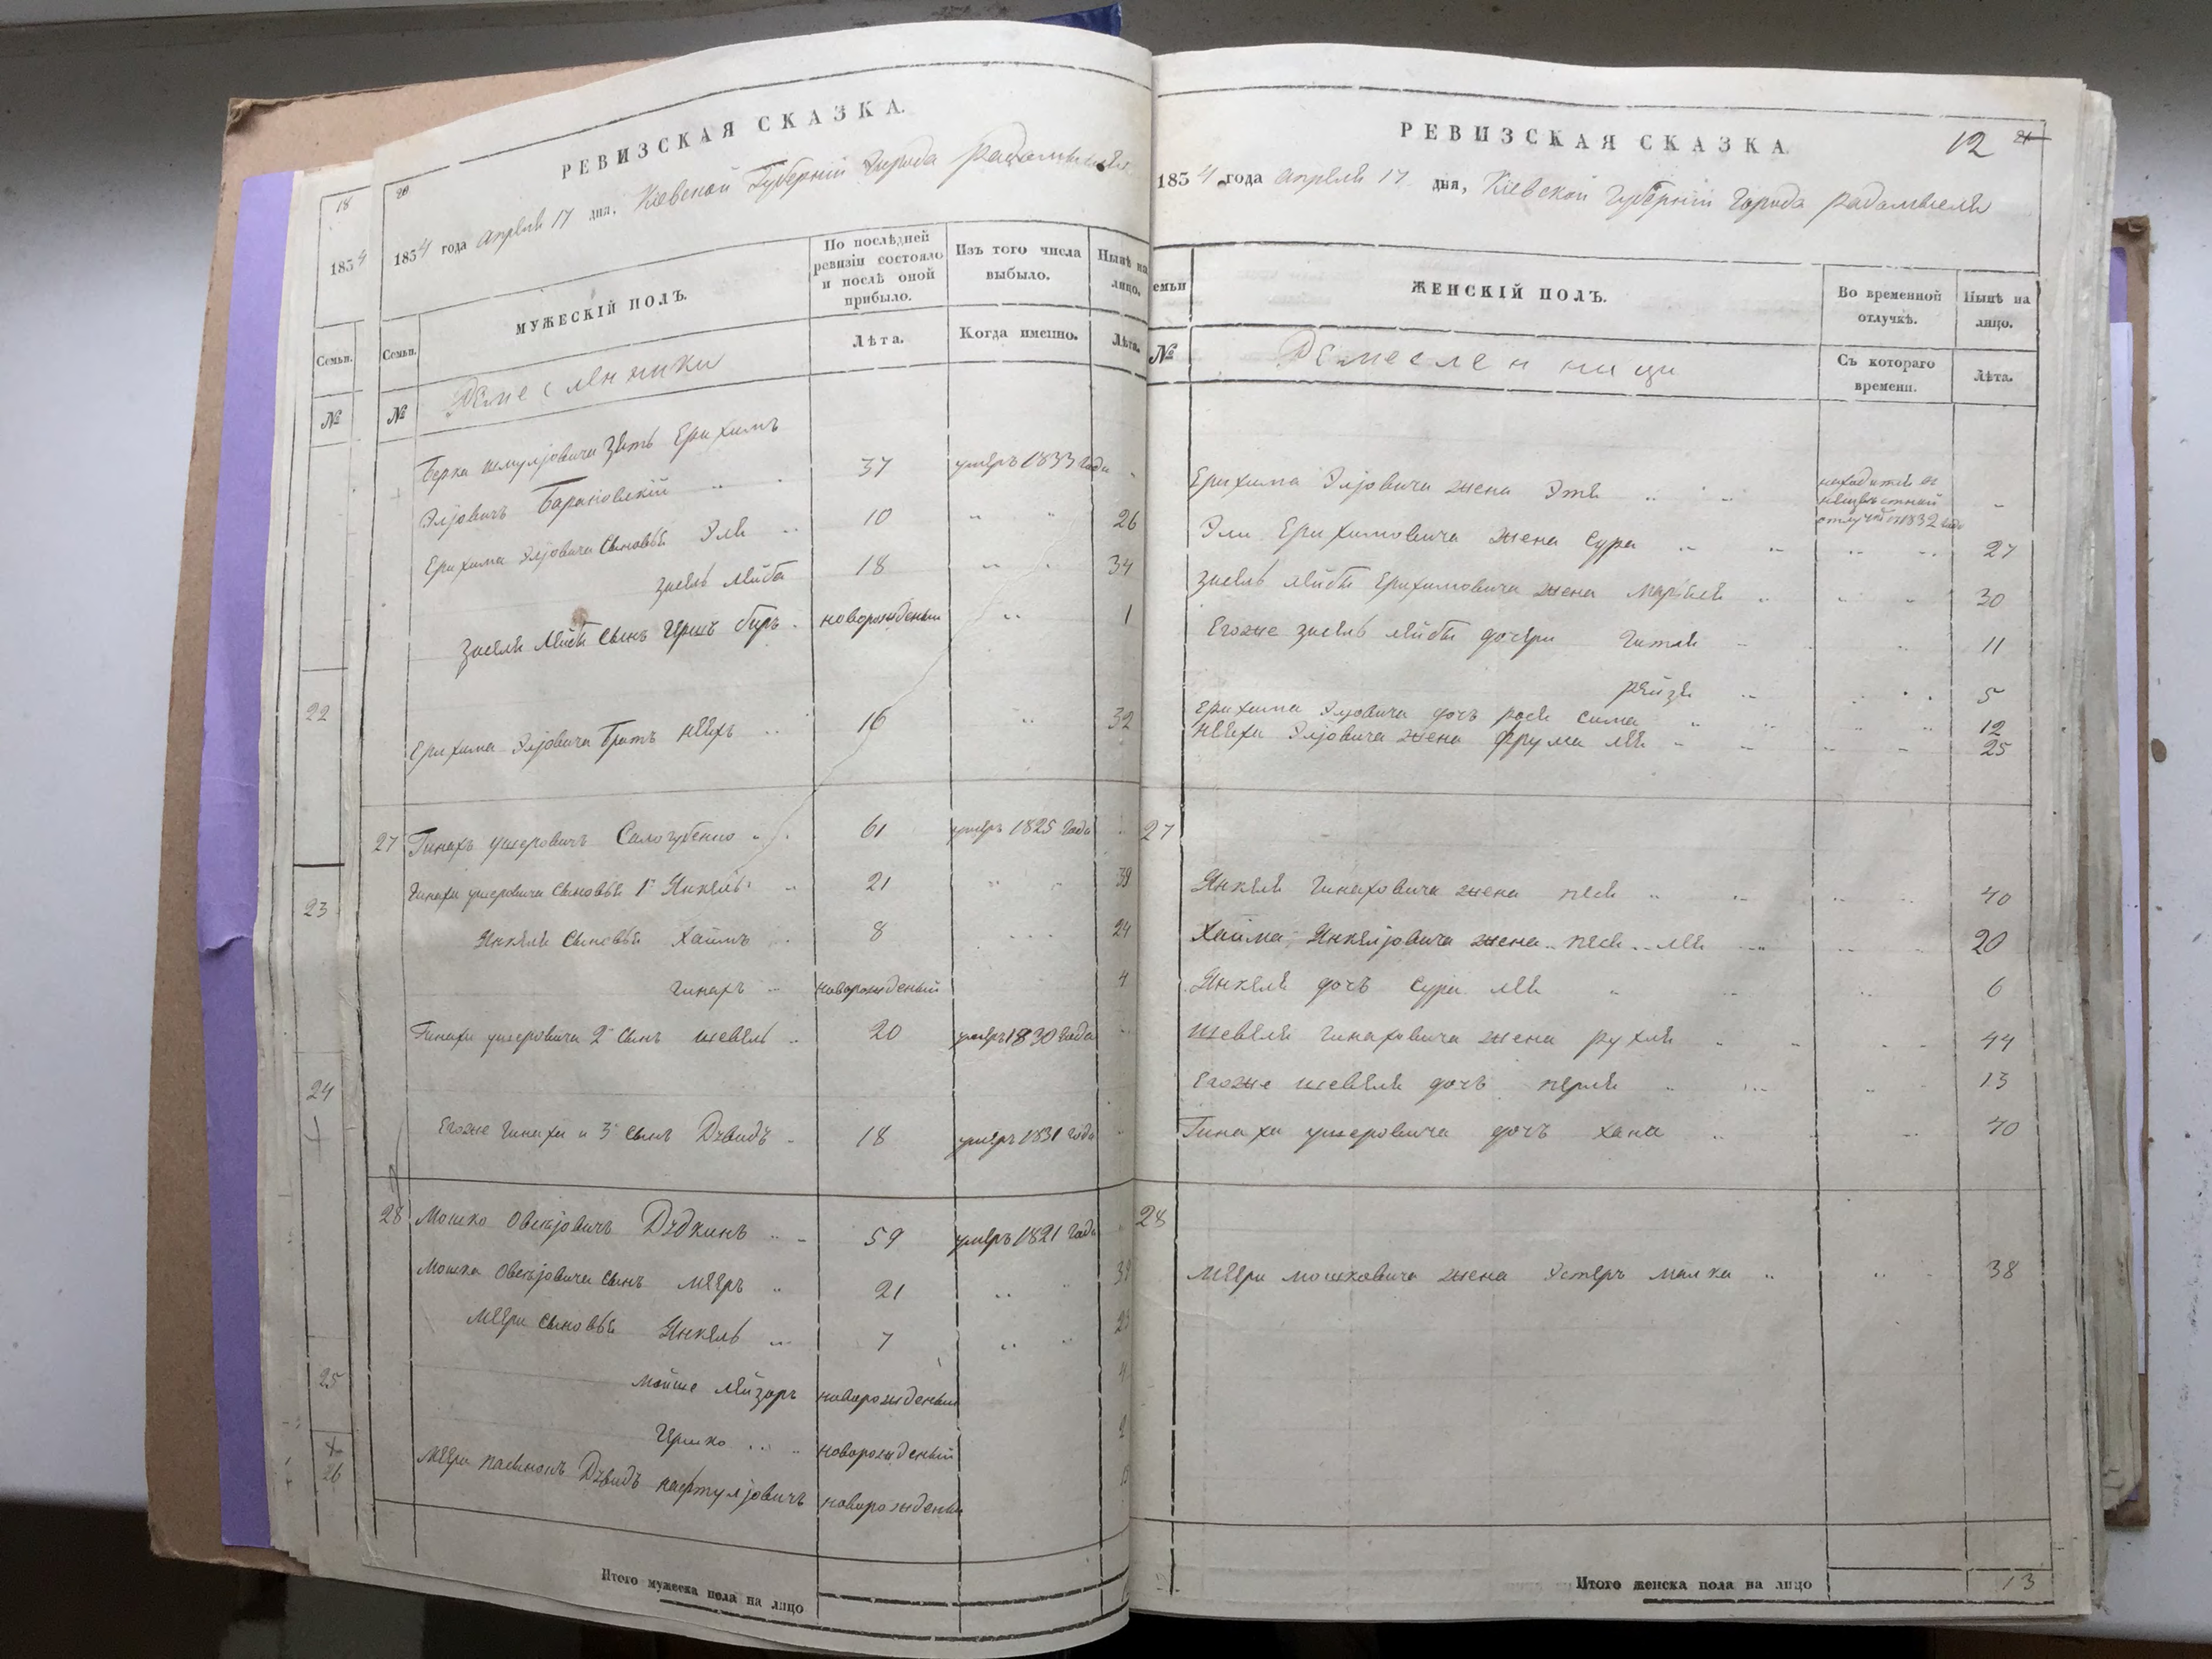 18
1834
Семьи.
№
22
23
24
25
26
20
РЕВИЗСКАЯ СКАЗКА.
1834 года апреля 17 дня, Кіевской Губерніи Города Радомысля
Семьи.
МУЖЕСКІЙ ПОЛЪ.
По послѣдней ревизіи состояло и послѣ оной прибыло.
Изъ того числа выбыло.
Нынѣ на лицо.
№
Ремесленники
Лѣта.
Когда именно.
Лѣта.
Берка Шмулјовича Зять Ерихимъ
Элјовичъ Барановскій 37 умеръ 1833 Года
Ерихима Элјовича Сыновья Эля 10 26
Зисель Лейба 18 34
Зиселя Лейбы Сынъ Гершъ Беръ новорожденый 1
Ерихима Элјовича Братъ 16 32
27 Гинахъ Ушеровичъ Салогубенко 61 умеръ 1825 Года
Гинаха Ушеровича Сыновья 1й Янкель 21 39
Янкеля Сыновья Хаимъ 8 24
Гинахъ новорожденый 4
Гинаха Ушеровича 2й Сынъ Шевель 20 умеръ 1830 Года
Егоже Гинаха и 3й Сынъ Дувидъ 18 умеръ 1831 Года
28 Мошко Овсѣјовичъ Дудкинъ 59 умеръ 1821 Года
Мошка Овсѣјовича Сынъ Мееръ 21
Меера Сыновья Янкель 7 23
Мойше Лейзоръ новорожденый 4
Гершко новорожденый 2
Меера пасынокъ Дувидъ Нафтулјовичъ новорожденый
Итого мужеска пола на лицо
РЕВИЗСКАЯ СКАЗКА
12 21
1834 года апреля 17 дня, Кіевской Губерніи Города Радомысля
емьи
ЖЕНСКІЙ ПОЛЪ.
Во временной отлучкѣ.
Нынѣ на лицо.
№
Ремесленници
Съ котораго времени.
Лѣта.
Ерихима Элјовича жена Этя находится въ неизвѣстной отлучкѣ 1832 года
Эли Ерихимовича жена Сура 27
Зисель Лейбы Ерихимовича жена 30
Егоже Зисель Лейбы дочери Гитля 11
Рейзя 5
Ерихима Элјовича дочь Рося Сима 12
Элјовича жена Фрума Лея 25
27
Янкеля Гинаховича жена Песя 40
Хаима Янкелјовича жена Песя Лея 20
Янкеля дочь Сура Лея 6
Шевеля Гинаховича жена Рухля 44
Егоже Шевеля дочь Перля 13
Гинаха Ушеровича дочь Хана 40
28
Меера Мошковича жена Эстеръ Малка 38
Итого женска пола на лицо 13